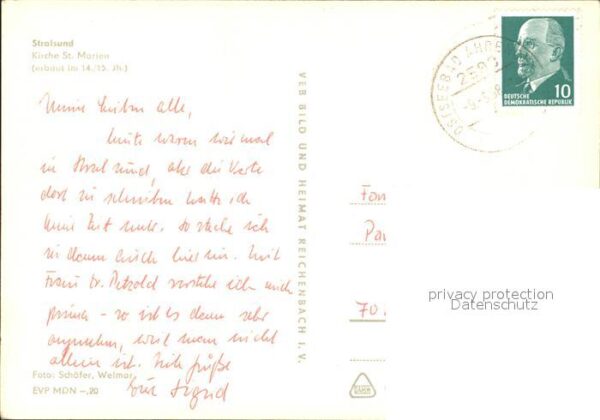 Stralsund
Kirche St. Marien
(erbaut im 14./15. Jh.)
Meine lieben alle,
heute waren wir mal
in Stralsund, aber die Karte
dort zu schreiben hatte ich
keine Zeit mehr. So stecke ich
sie dann auch hier ein. Mit
Frau Dr. Petzold verstehe ich mich
prima - so ist es dann sehr
angenehm, weil man nicht
allein ist. Viele Grüße
Eure Sigrid
Foto: Schäfer, Weimar
EVP MDN –,20
VEB BILD UND HEIMAT REICHENBACH I. V.
OSTSEEBAD AHRE
DEUTSCHE
DEMOKRATISCHE REPUBLIK
10
Fam
Pa
70
privacy protection
Datenschutz